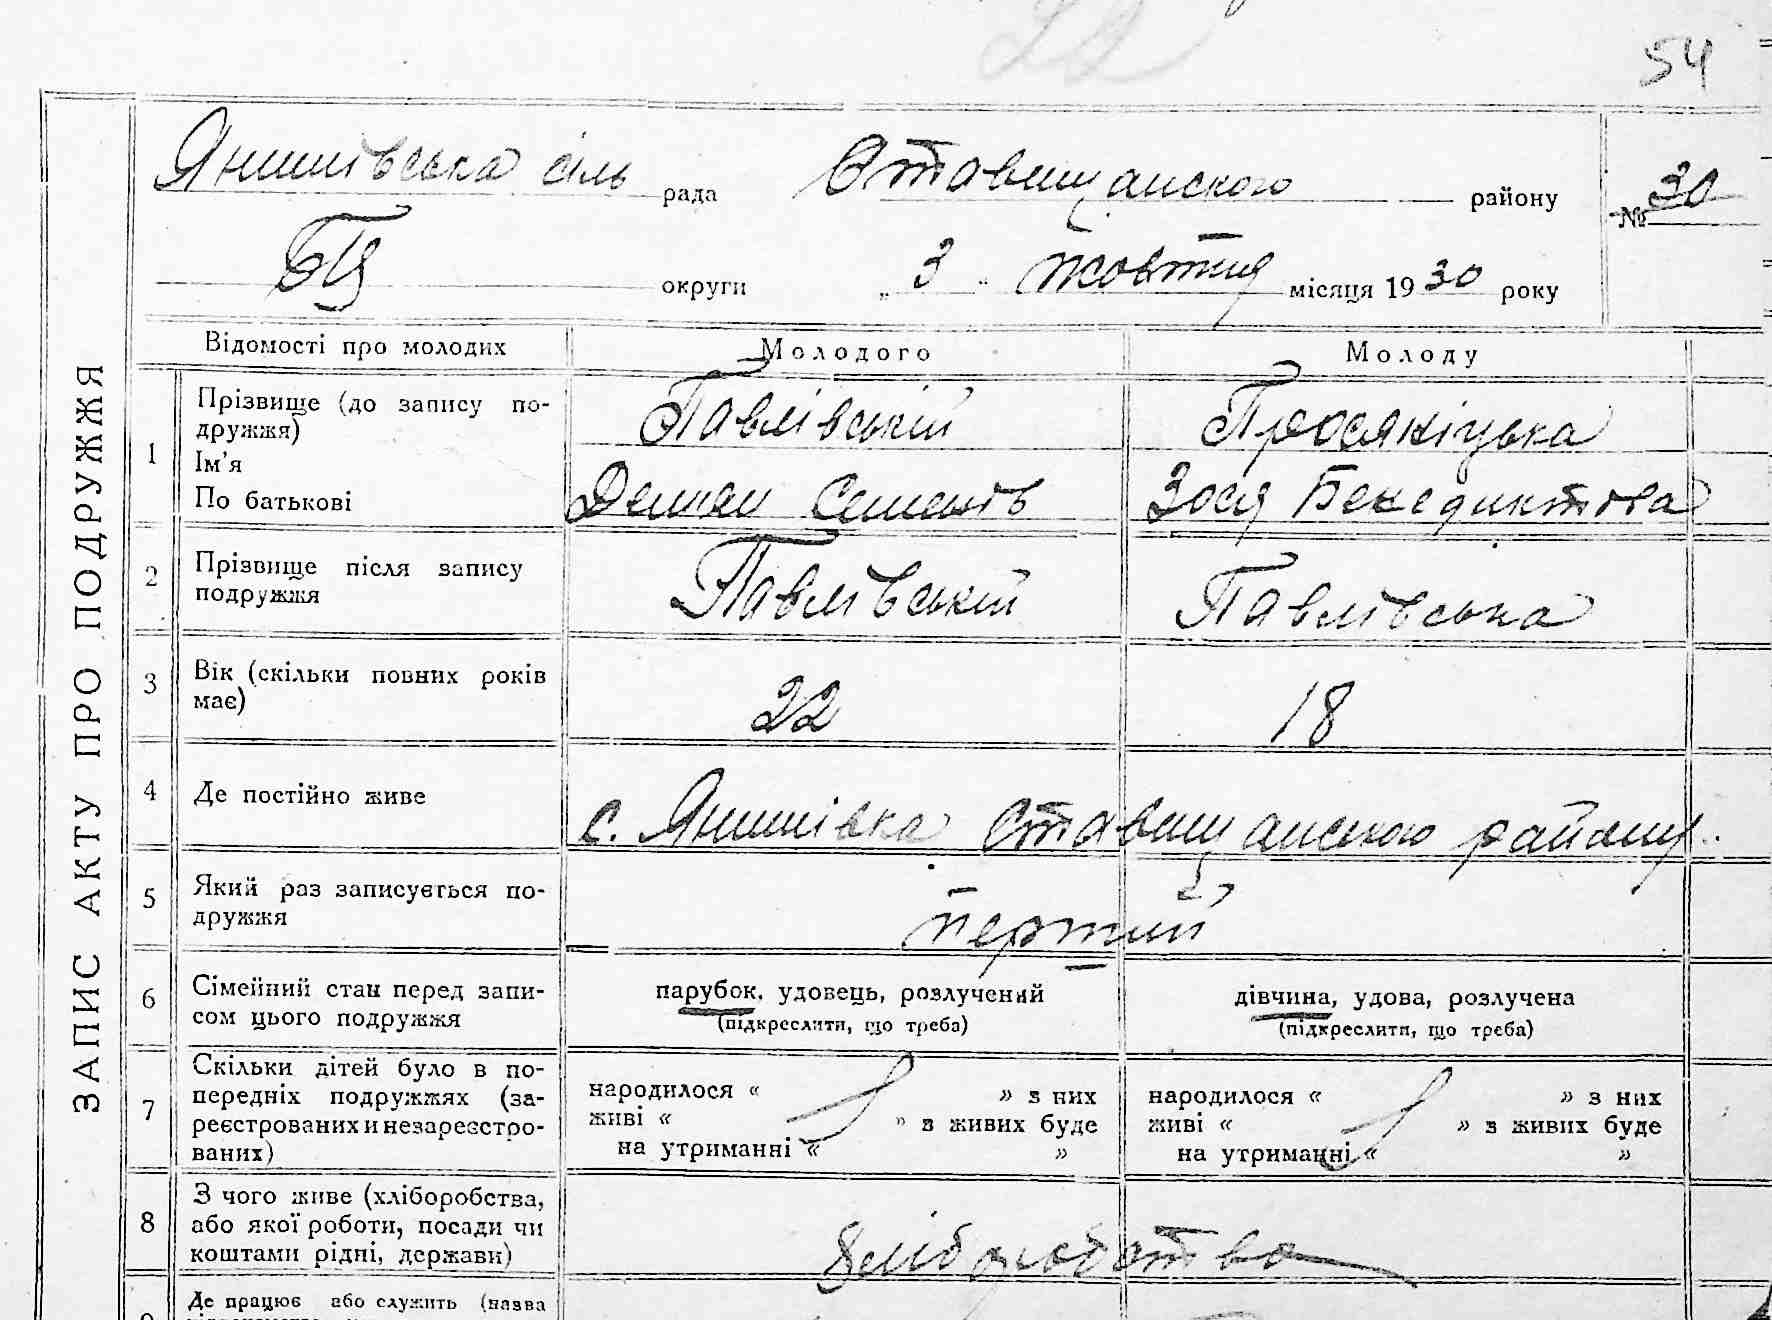 54
Янишівська сіль рада Ставищанского району № 30
БЦ округи „ 3 “ жовтня місяця 19 30 року
ЗАПИС АКТУ ПРО ПОДРУЖЖЯ
Відомості про молодих Молодого Молоду
1 Прізвище (до запису по-
дружжя) Павлівській Просяніцька
Ім'я
По батькові Демян Семенів Зося Бенедиктова
2 Прізвище після запису
подружжя Павлівській Павлівська
3 Вік (скільки повних років
має) 22 18
4 Де постійно живе с. Янишівка Ставищанского району.
5 Який раз записується по-
дружжя перший
6 Сімейний стан перед запи-
сом цього подружжя
парубок, удовець, розлучений
(підкреслити, що треба)
дівчина, удова, розлучена
(підкреслити, що треба)
7 Скільки дітей було в по-
передніх подружжях (за-
реєстрованих и незареєстро-
ваних)
народилося « » з них
живі « » з живих буде
на утриманні « »
народилося « » з них
живі « » з живих буде
на утриманні « »
8 З чого живе (хліборобства,
або якої роботи, посади чи
коштами рідні, держави) хліборобства
9 Де працює або служить (назва